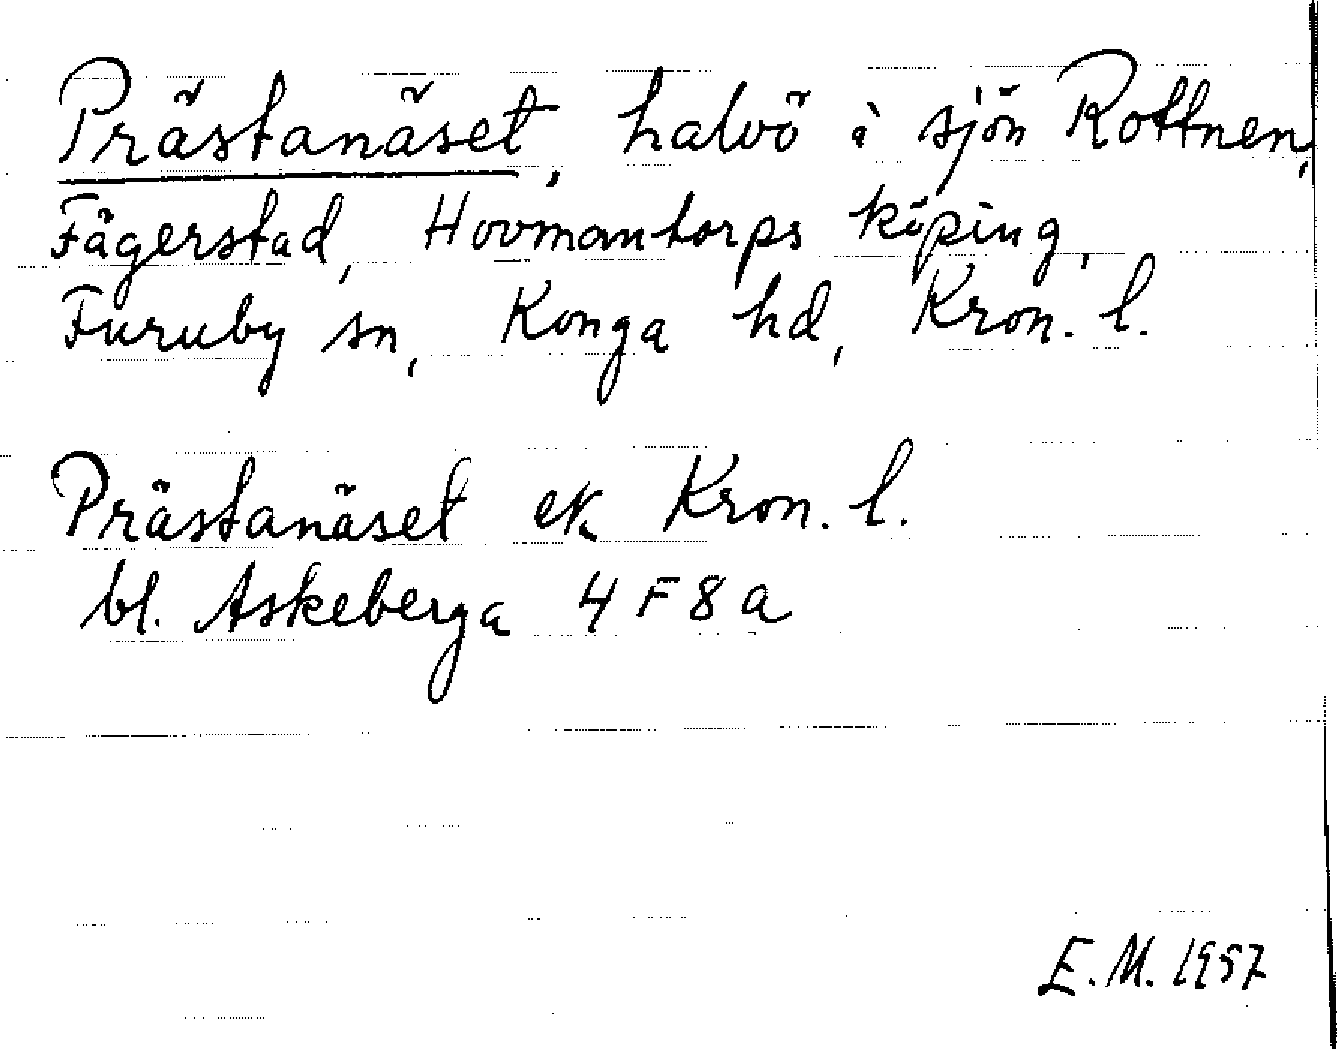 Prästanäset, halvö i sjön Rottnen,
Fägerstad, Hovmantorps köping,
Furuby sn, Konga hd, Kron. l.
Prästanäset ek Kron. l.
bl. Askeberga 4 F 8 a
E. M. 1957